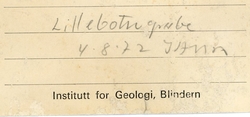 Lillebotn grube
4.8.72
Institutt for Geologi, Blindern